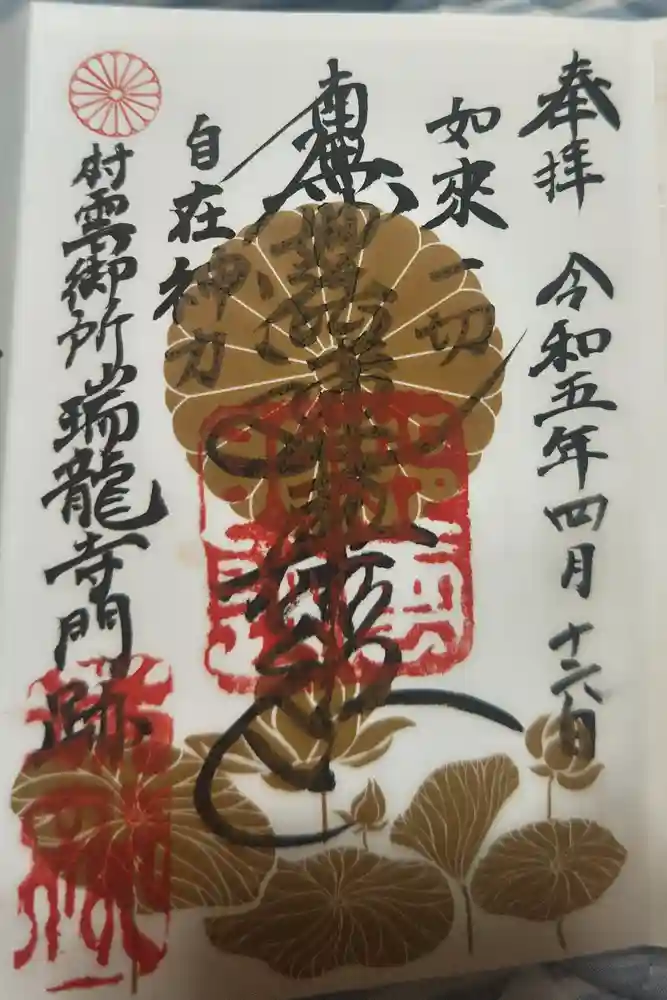 奉拝 令和五年四月十六日
如來一切
南無妙法蓮華経
自在神力
村雲御所瑞龍寺門跡